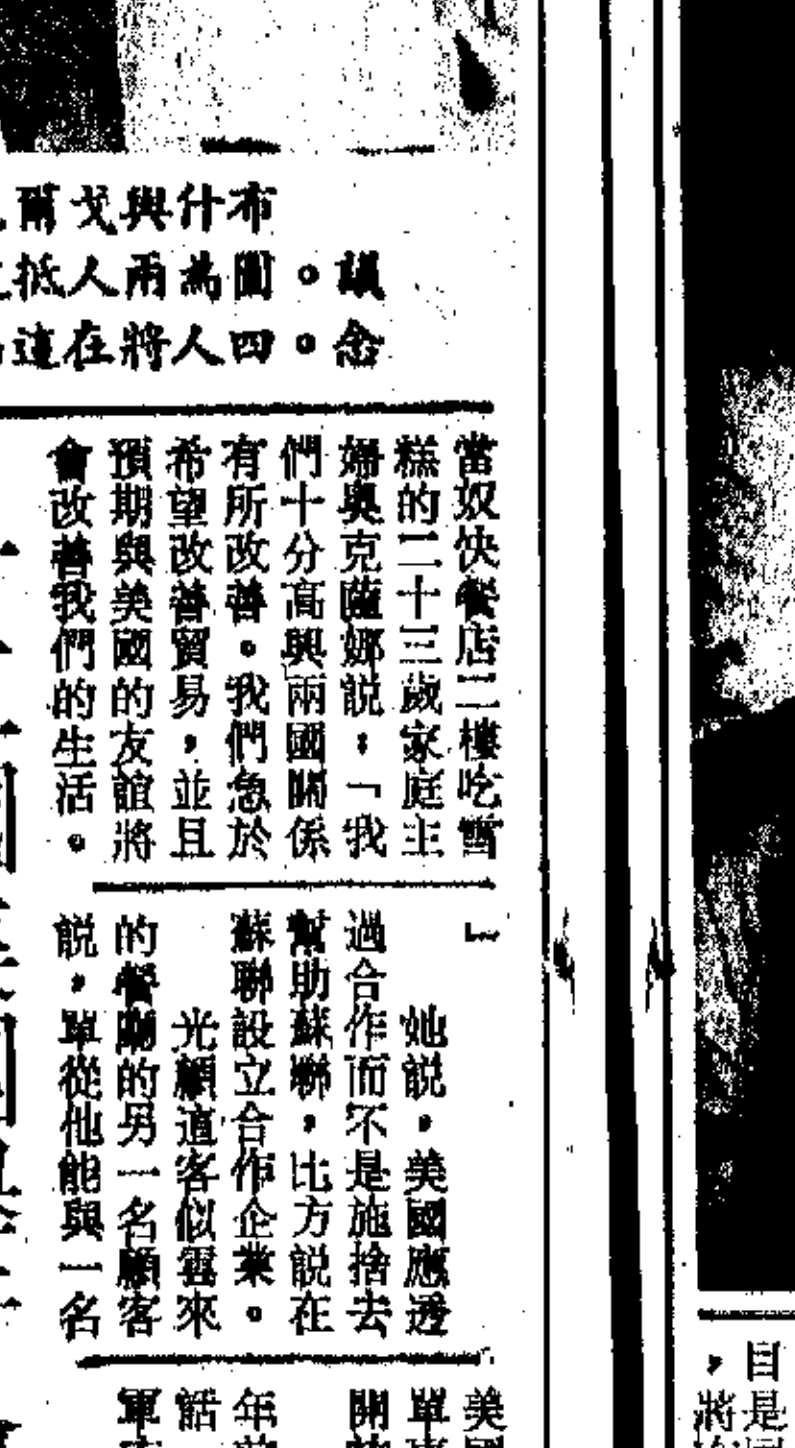 布什與戈爾
議。圖為兩人抵
念。四人將在這
當奴快餐店二樓吃雪
糕的二十三歲家庭主
婦奧克薩娜説：「我
們十分高興兩國關係
有所改善。我們急於
希望改善貿易，並且
預期與美國的友誼將
會改善我們的生活。
」
她説，美國應透
過合作而不是施捨去
幫助蘇聯，比方説在
蘇聯設立合作企業。
光顧這客似雲來
的餐廳的另一名顧客
説，單從他能與一名
美
單
開
年
話
軍
目是
，將